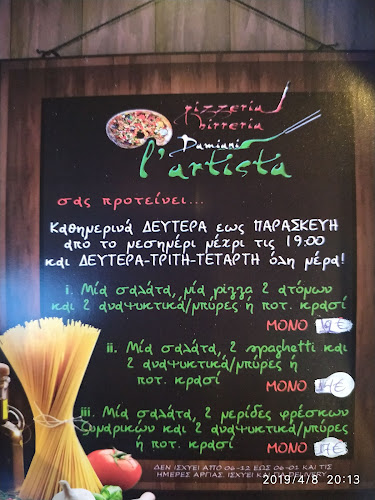 pizzeria
birreria
Damiani
l'artista
σας προτείνει...
Καθημερινά ΔΕΥΤΕΡΑ εως ΠΑΡΑΣΚΕΥΗ
απο το μεσημέρι μέχρι τις 19:00
και ΔΕΥΤΕΡΑ-ΤΡΙΤΗ-ΤΕΤΑΡΤΗ όλη μέρα!
i. Μία σαλάτα, μία pizza 2 ατόμων
και 2 αναψυκτικά/μπύρες ή ποτ. κρασί
ΜΟΝΟ €
ii. Μία σαλάτα, 2 spaghetti και
2 αναψυκτικά/μπύρες ή
ποτ. κρασί
ΜΟΝΟ 14€
iii. Μία σαλάτα, 2 μερίδες φρέσκων
ζυμαρικών και 2 αναψυκτικά/μπύρες
ή ποτ. κρασί
ΜΟΝΟ 17€
ΔΕΝ ΙΣΧΥΕΙ ΑΠΟ 06-12 ΕΩΣ 06-01 ΚΑΙ ΤΙΣ
ΗΜΕΡΕΣ ΑΡΓΙΑΣ. ΙΣΧΥΕΙ ΚΑΙ ΓΙΑ DELIVERY
2019/4/8 20:13